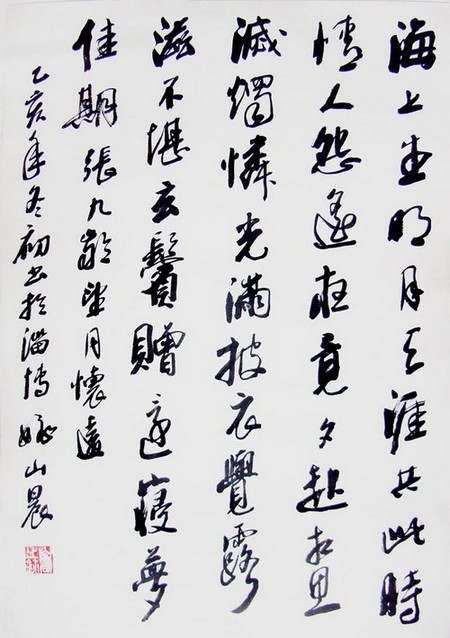 海上生明月天涯共此時
情人怨遙夜竟夕起相思
滅燭憐光滿披衣覺露
滋不堪玄鬢贈還寢夢
佳期張九齡望月懷遠
乙亥年冬初書於淄博山晨